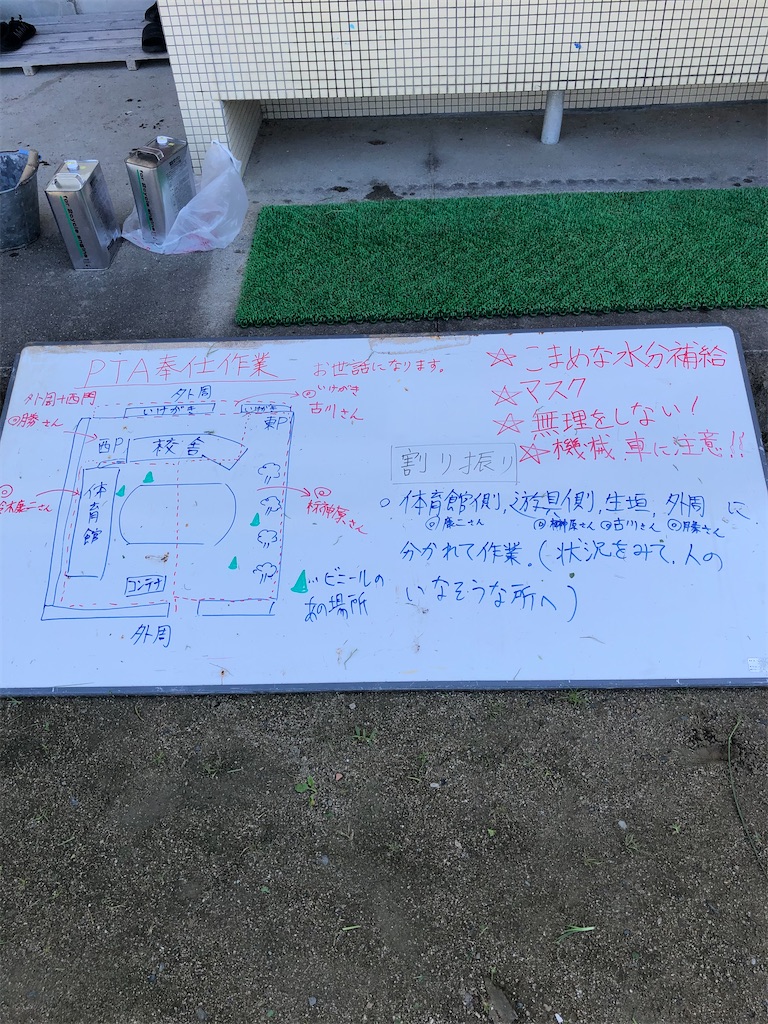 PTA奉仕作業
お世話になります。
☆こまめな水分補給
☆マスク
☆無理をしない!
☆機械、車に注意!!
外周+西門
勝さん
外周
いけがき
いけがき
いけがき
古川さん
東P
西P
校舎
体育館
コンテナ
外周
…ビニールの
あの場所
割り振り
○体育館側,遊具側,生垣,外周に
榊原さん
古川さん
勝さん
分かれて作業。(状況をみて、人の
いなそうな所へ)